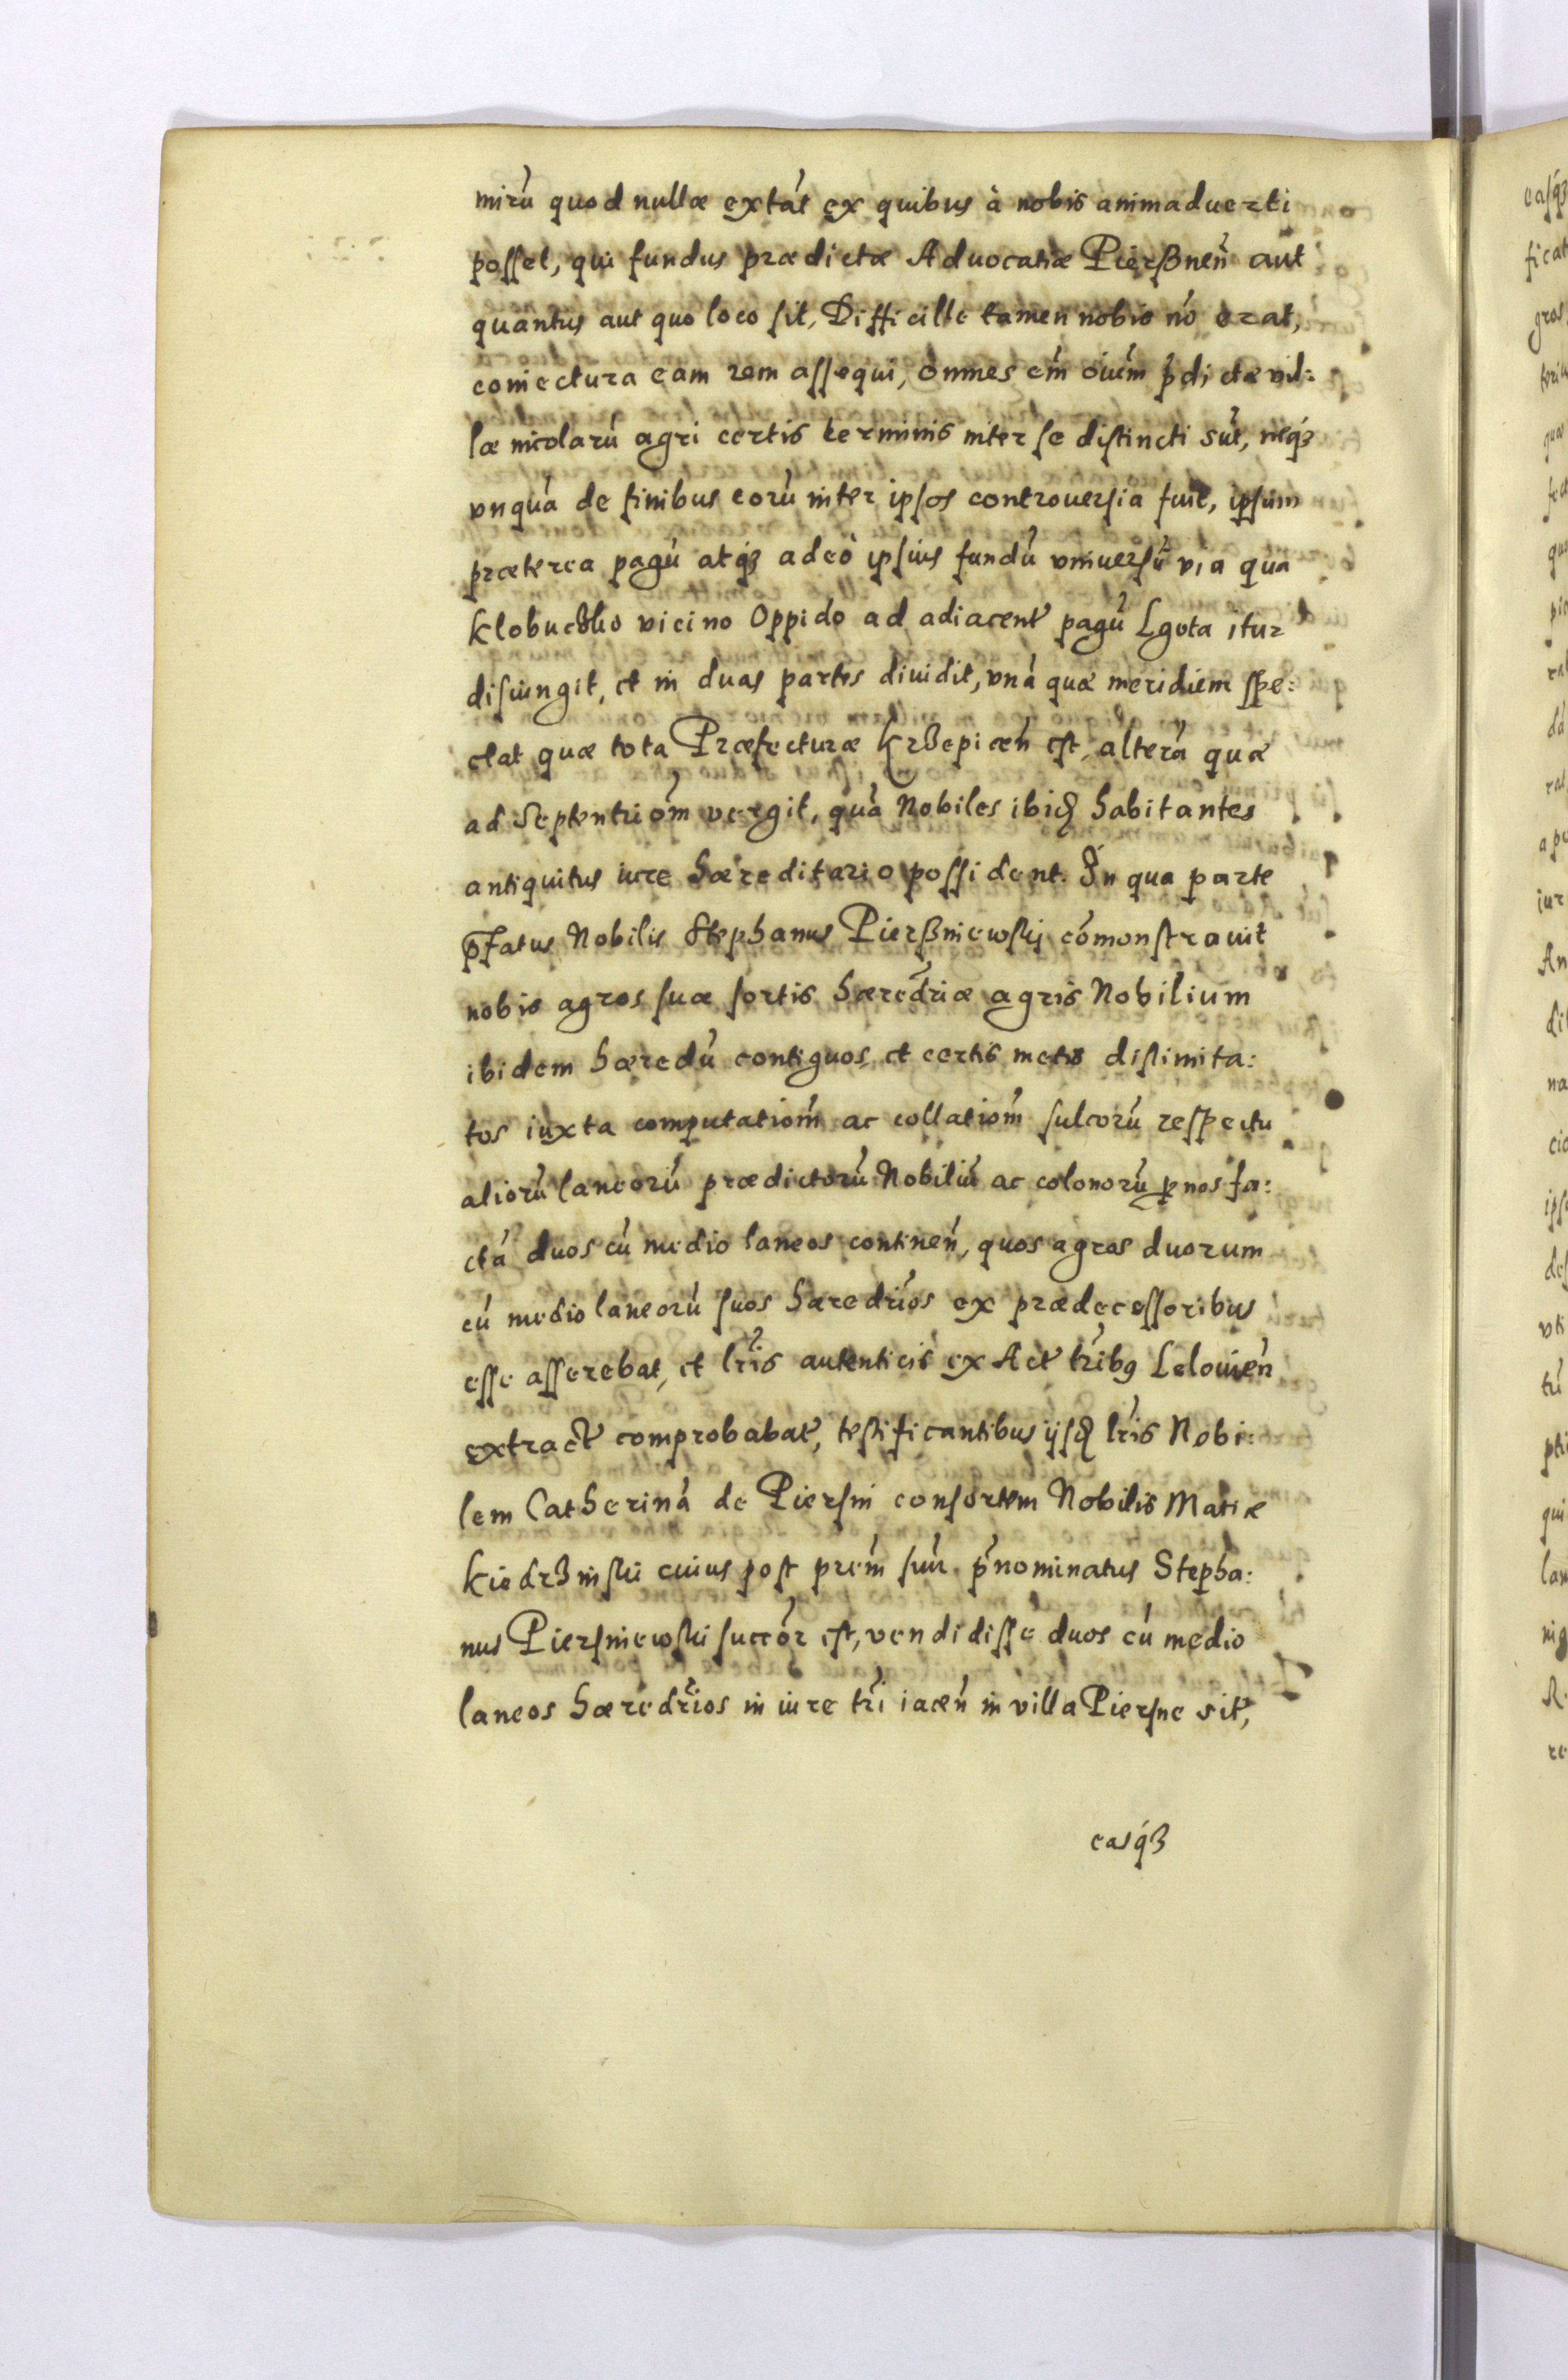 mirū quod nullæ extāt ex quibus à nobis animaduerti
posset, qui fundus prædictæ Aduocatiæ Pierßneñ aut
quantus aut quo loco sit, Difficille tamen nobis nō erat,
coniectura eam rem assequi, omnes em̄ oiūm p̄dictæ vil:
læ incolarū agri certis terminis inter se distincti sūt, neqʒ
vnquā de finibus eorū inter ipsos controuersia fuit, ipsum
præterea pagū atqʒ adeò ipsius fundū vniuersū via qua
Klobuczko vicino Oppido ad adiacent̃ pagū Lgota itur
disiungit, et in duas partes diuidit, vnā quæ meridiem spe:
ctat quæ tota Præfecturæ Krzepiceñ est, alterā quæ
ad Septentriom̄ vergit, quā Nobiles ibid̃ habitantes
antiquitus iure hæreditario possident. In qua parte
p̄fatus Nobilis Stephanus Pierßniewskj cōmonstrauit
nobis agros suæ sortis hæredr̄iæ agris Nobilium
ibidem hæredū contiguos, et certis metis dislimita:
tos iuxta computatiom̄ ac collatiom̄ sulcorū respectu
aliorū laneorū prædictorū Nobiliū ac colonorū ꝑ nos fa:
ctā duos cū medio laneos contineñ, quos agros duorum
cū medio laneorū suos hæredr̄ios ex prædecessoribus
esse asserebat, et lr̄is autenticis ex Act̃ tr̄ibꝯ Lelouieñ
extract̃ comprobabat, testificantibus ijsd̃ lr̄is Nobi:
lem Catherinā de Piersni consortem Nobilis Matiæ
Kiedrzinski cuius post pr̄em̄ suū p̄nominatus Stepha:
nus Piersniewski succōr est, vendidisse duos cū medio
laneos hæredr̄ios in iure tr̄i iaceñ in villa Piersne sit̃,
easqʒ